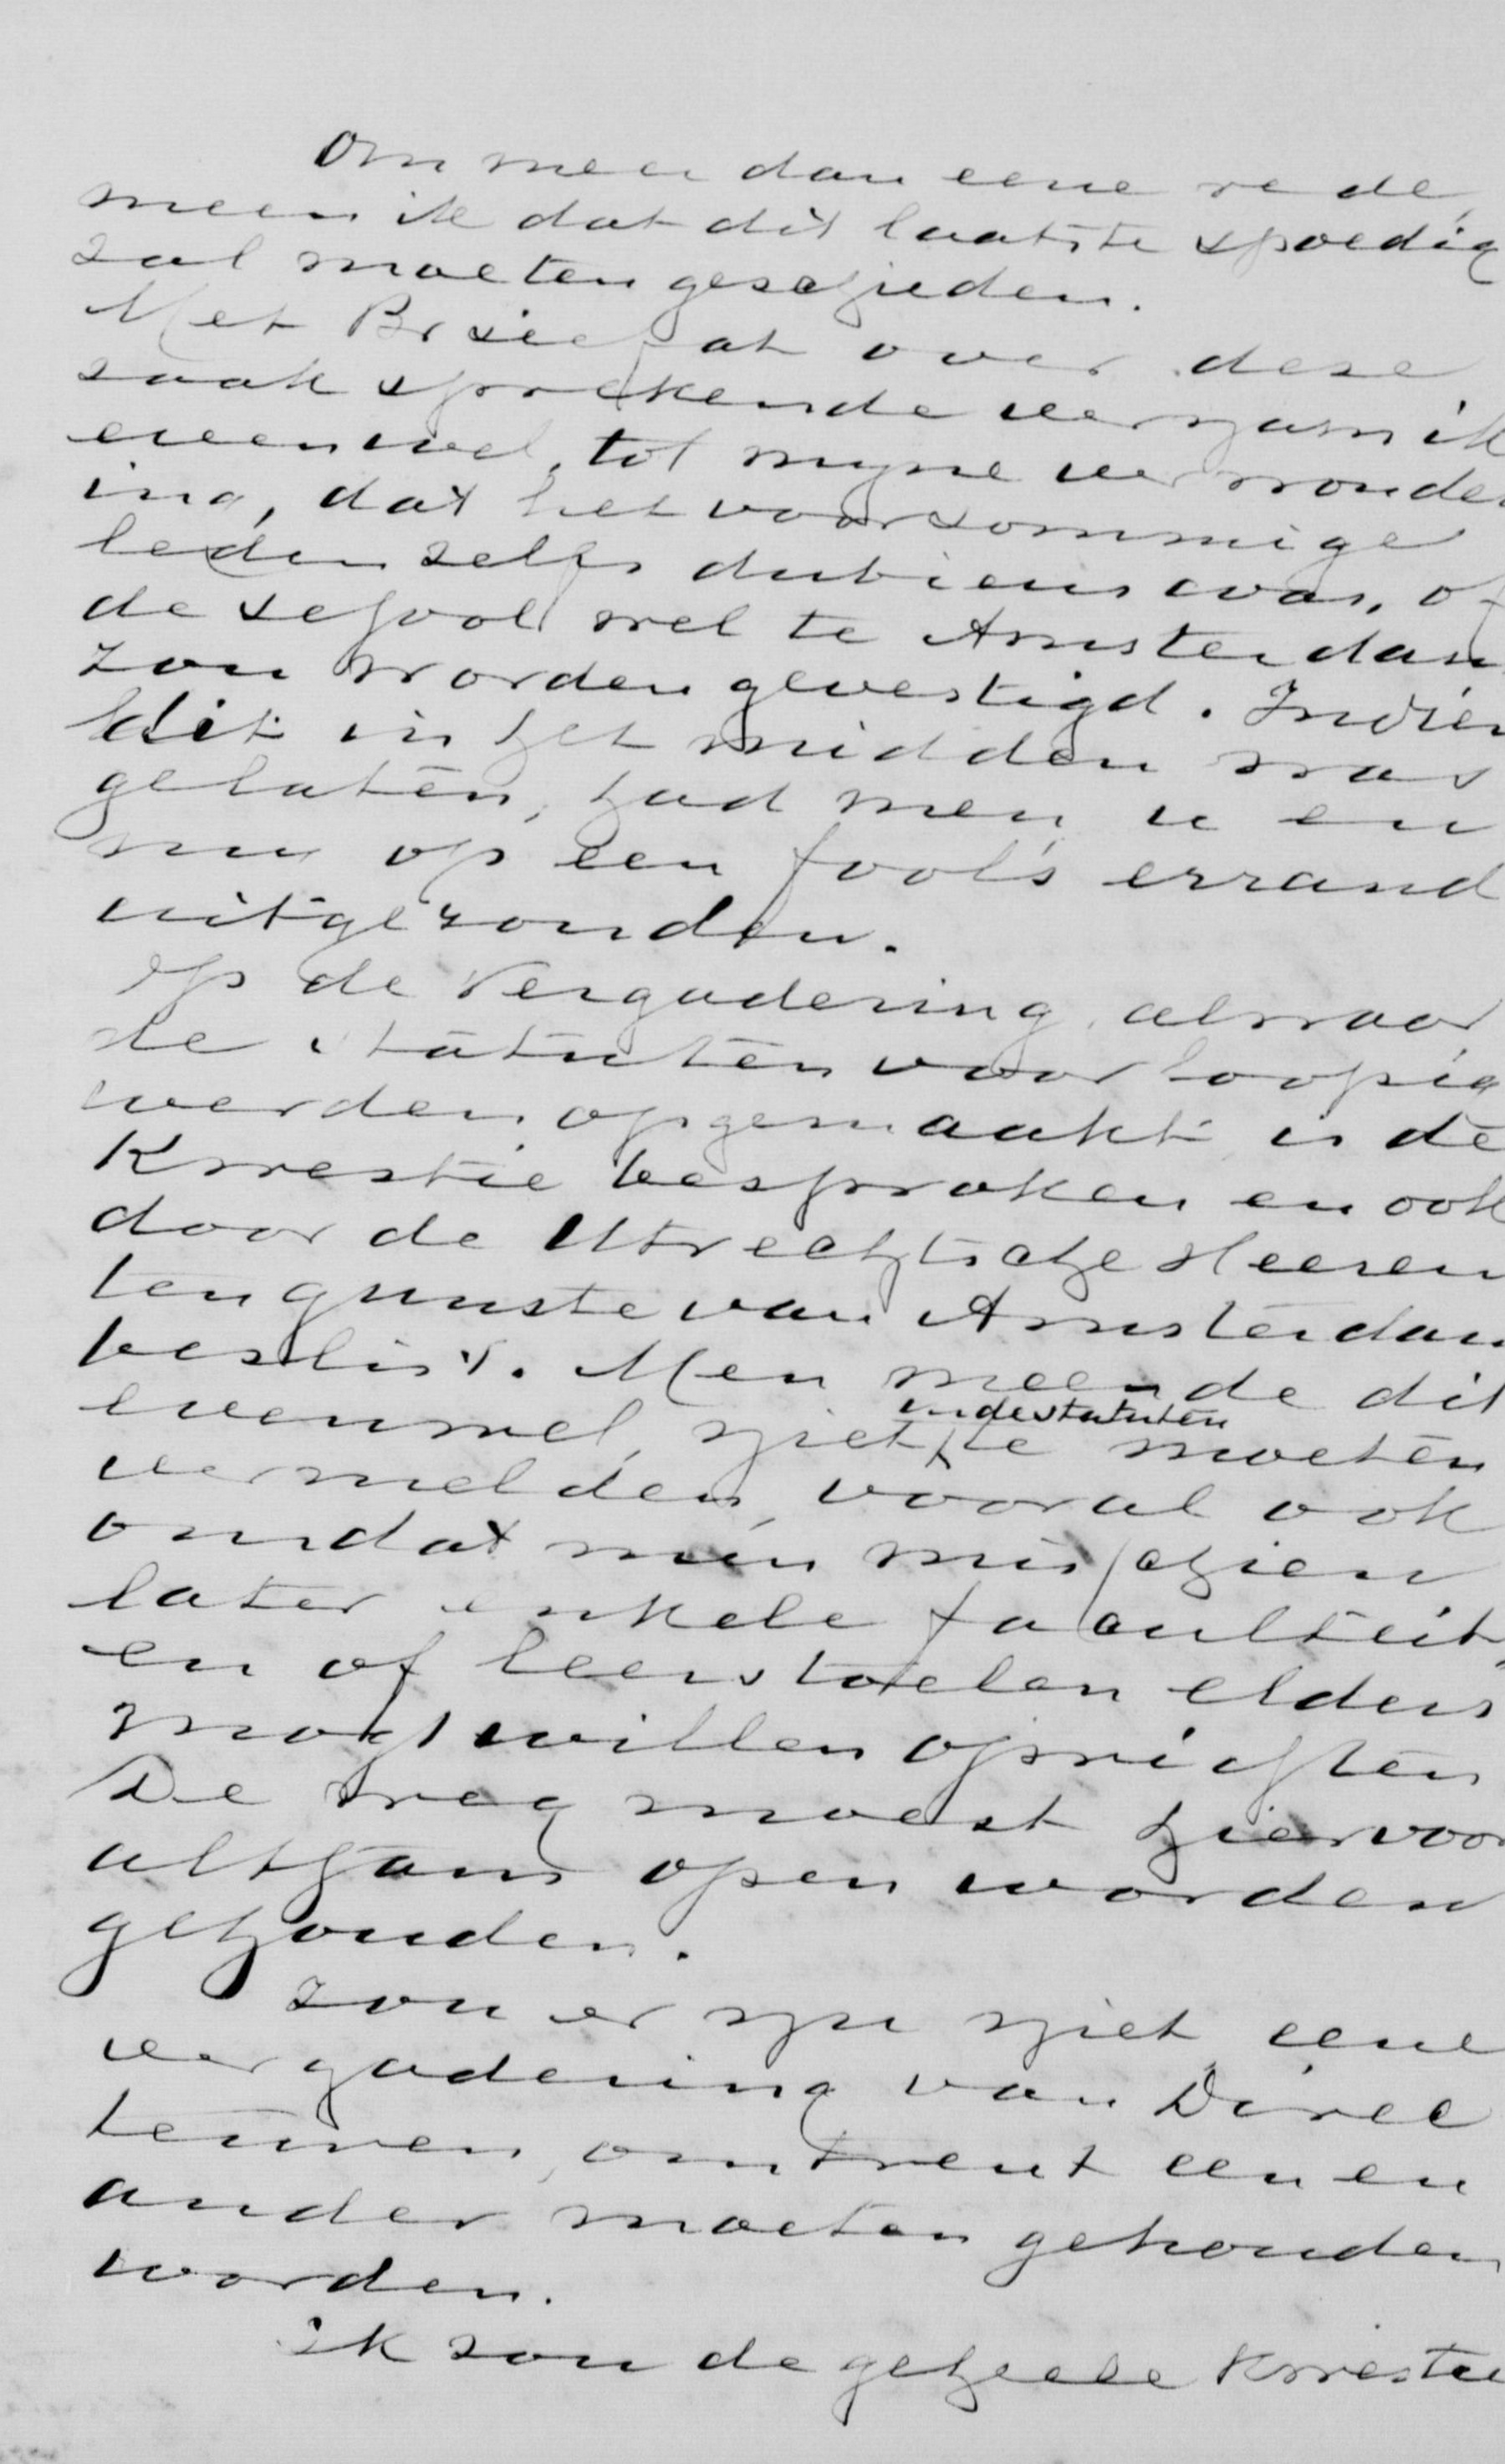 Om meer dan eene rede,
meen ik dat dit laatste spoedig
zal moeten geschieden.
Met over deze
zaak sprekende vernam ik
evenwel, tot mijne verwonder
ing, dat het voor sommige
leden zelfs dubieus was, of
de school wel te Amsterdam
zou worden gevestigd. Indien
dit in het midden was
gelaten, had men u en
mij op een fool's errand
uitgezonden.
Op de Vergadering, alwaar
de statuten voorloopig
werden opgemaakt is de
Kwestie besproken en ook
door de Utrechtsche Heeren
ten gunste van Amsterdam
beslist. Men meende dit
in de statuten
evenwel, niet te moeten
vermelden, vooral ook
omdat men misschien
later enkele faculteit,
en of leerstoelen elders
mogt willen oprichten
De weg moest hiervoor
althans open worden
gehouden.
Zou er nu niet eene
vergadering van Direc
teuren, omtrent een en
ander moeten gehouden
worden.
Ik zou de geheele Kwestie